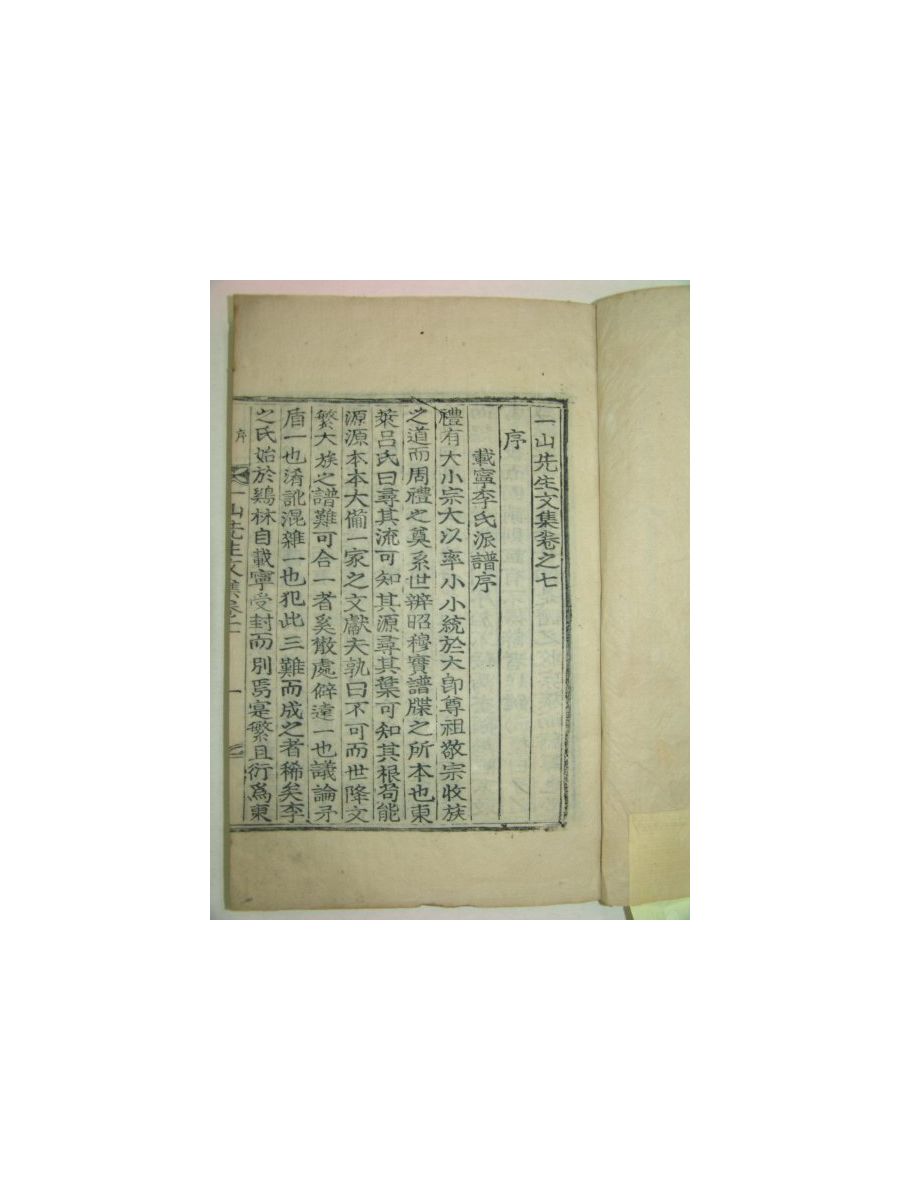 一山先生文集卷之七
序
載寧李氏派譜序
禮有大小宗大以率小小統於大卽尊祖敬宗收族
之道而周禮之奠系世辨昭穆實譜牒之所本也東
萊呂氏曰尋其流可知其源尋其葉可知其根苟能
源源本本大備一家之文獻夫孰曰不可而世降文
繁大族之譜難可合一者奚散處僻遠一也議論矛
盾一也淆訛混雜一也犯此三難而成之者稀矣李
之氏始於鷄林自載寧受封而別焉寔繁且衍爲東
序
一山先生文集卷之
一